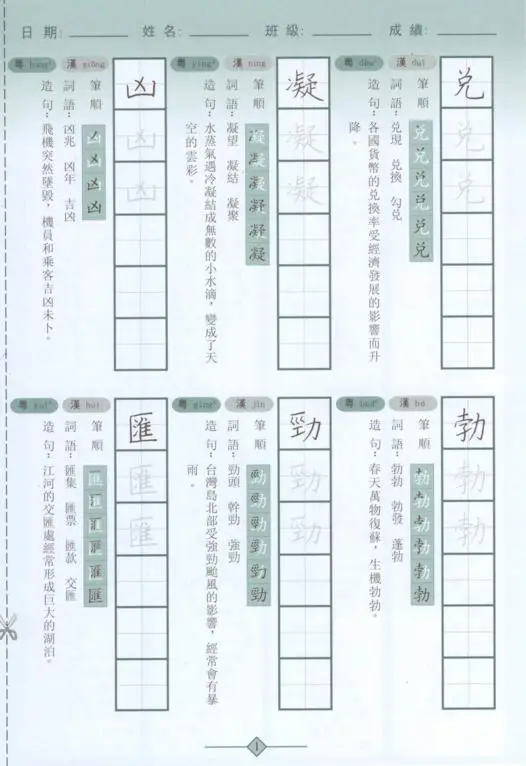 日期: 姓名: 班級: 成績:
兌
漢 duì
粵 dêu³
筆順
詞語:兌現 兌換 勾兌
造句:各國貨幣的兌換率受經濟發展的影響而升
降。
凝
漢 níng
粵 ying⁴
筆順
詞語:凝望 凝結 凝聚
造句:水蒸氣遇冷凝結成無數的小水滴,變成了天
空的雲彩。
凶
漢 xiōng
粵 hung¹
筆順
詞語:凶兆 凶年 吉凶
造句:飛機突然墜毀,機員和乘客吉凶未卜。
勃
漢 bó
粵
筆順
詞語:勃勃 勃發 蓬勃
造句:春天萬物復蘇,生機勃勃。
勁
漢 jìn
粵 ging³
筆順
詞語:勁頭 幹勁 強勁
造句:台灣島北部受強勁颱風的影響,經常會有暴
雨。
匯
漢 huì
粵
筆順
詞語:匯集 匯票 匯款 交匯
造句:江河的交匯處經常形成巨大的湖泊。
1